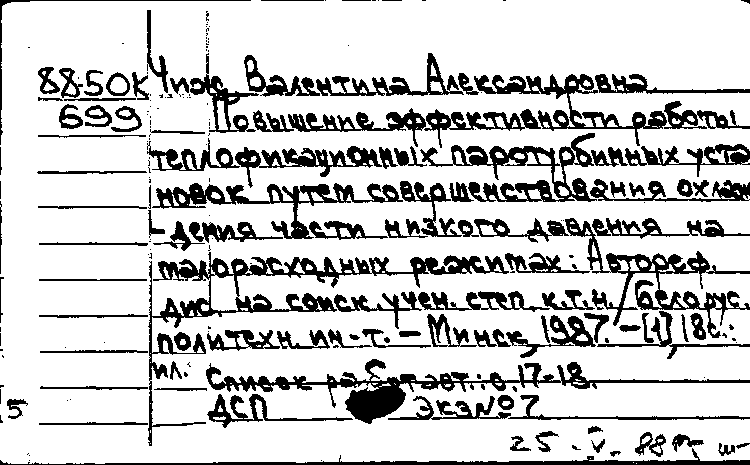 88-5OK Чиж Валентина Александровна.
699 Повышение эффективности работы
теплофикационных паротурбинных уста
новок путем совершенствования охлаж
-дения части низкого давления на
малорасходных режимах: Автореф.
дис. на соиск. учен. степ. к.т.н. / Белорус.
политехн. ин-т. – Минск, 1987. – [1], 18с.:
ил.
Список работ авт.: с. 17-18.
ДСП Экз № 7.
5
25. V. 88